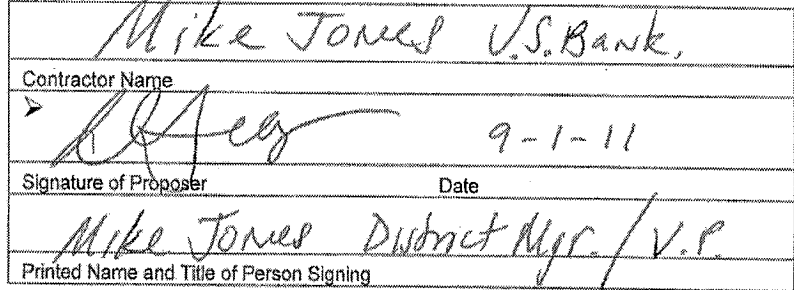 Mike Jones U.S. Bank.
Contractor Name
9-1-11
Signature of Proposer Date
Mike Jones District Mgr. / V.P.
Printed Name and Title of Person Signing